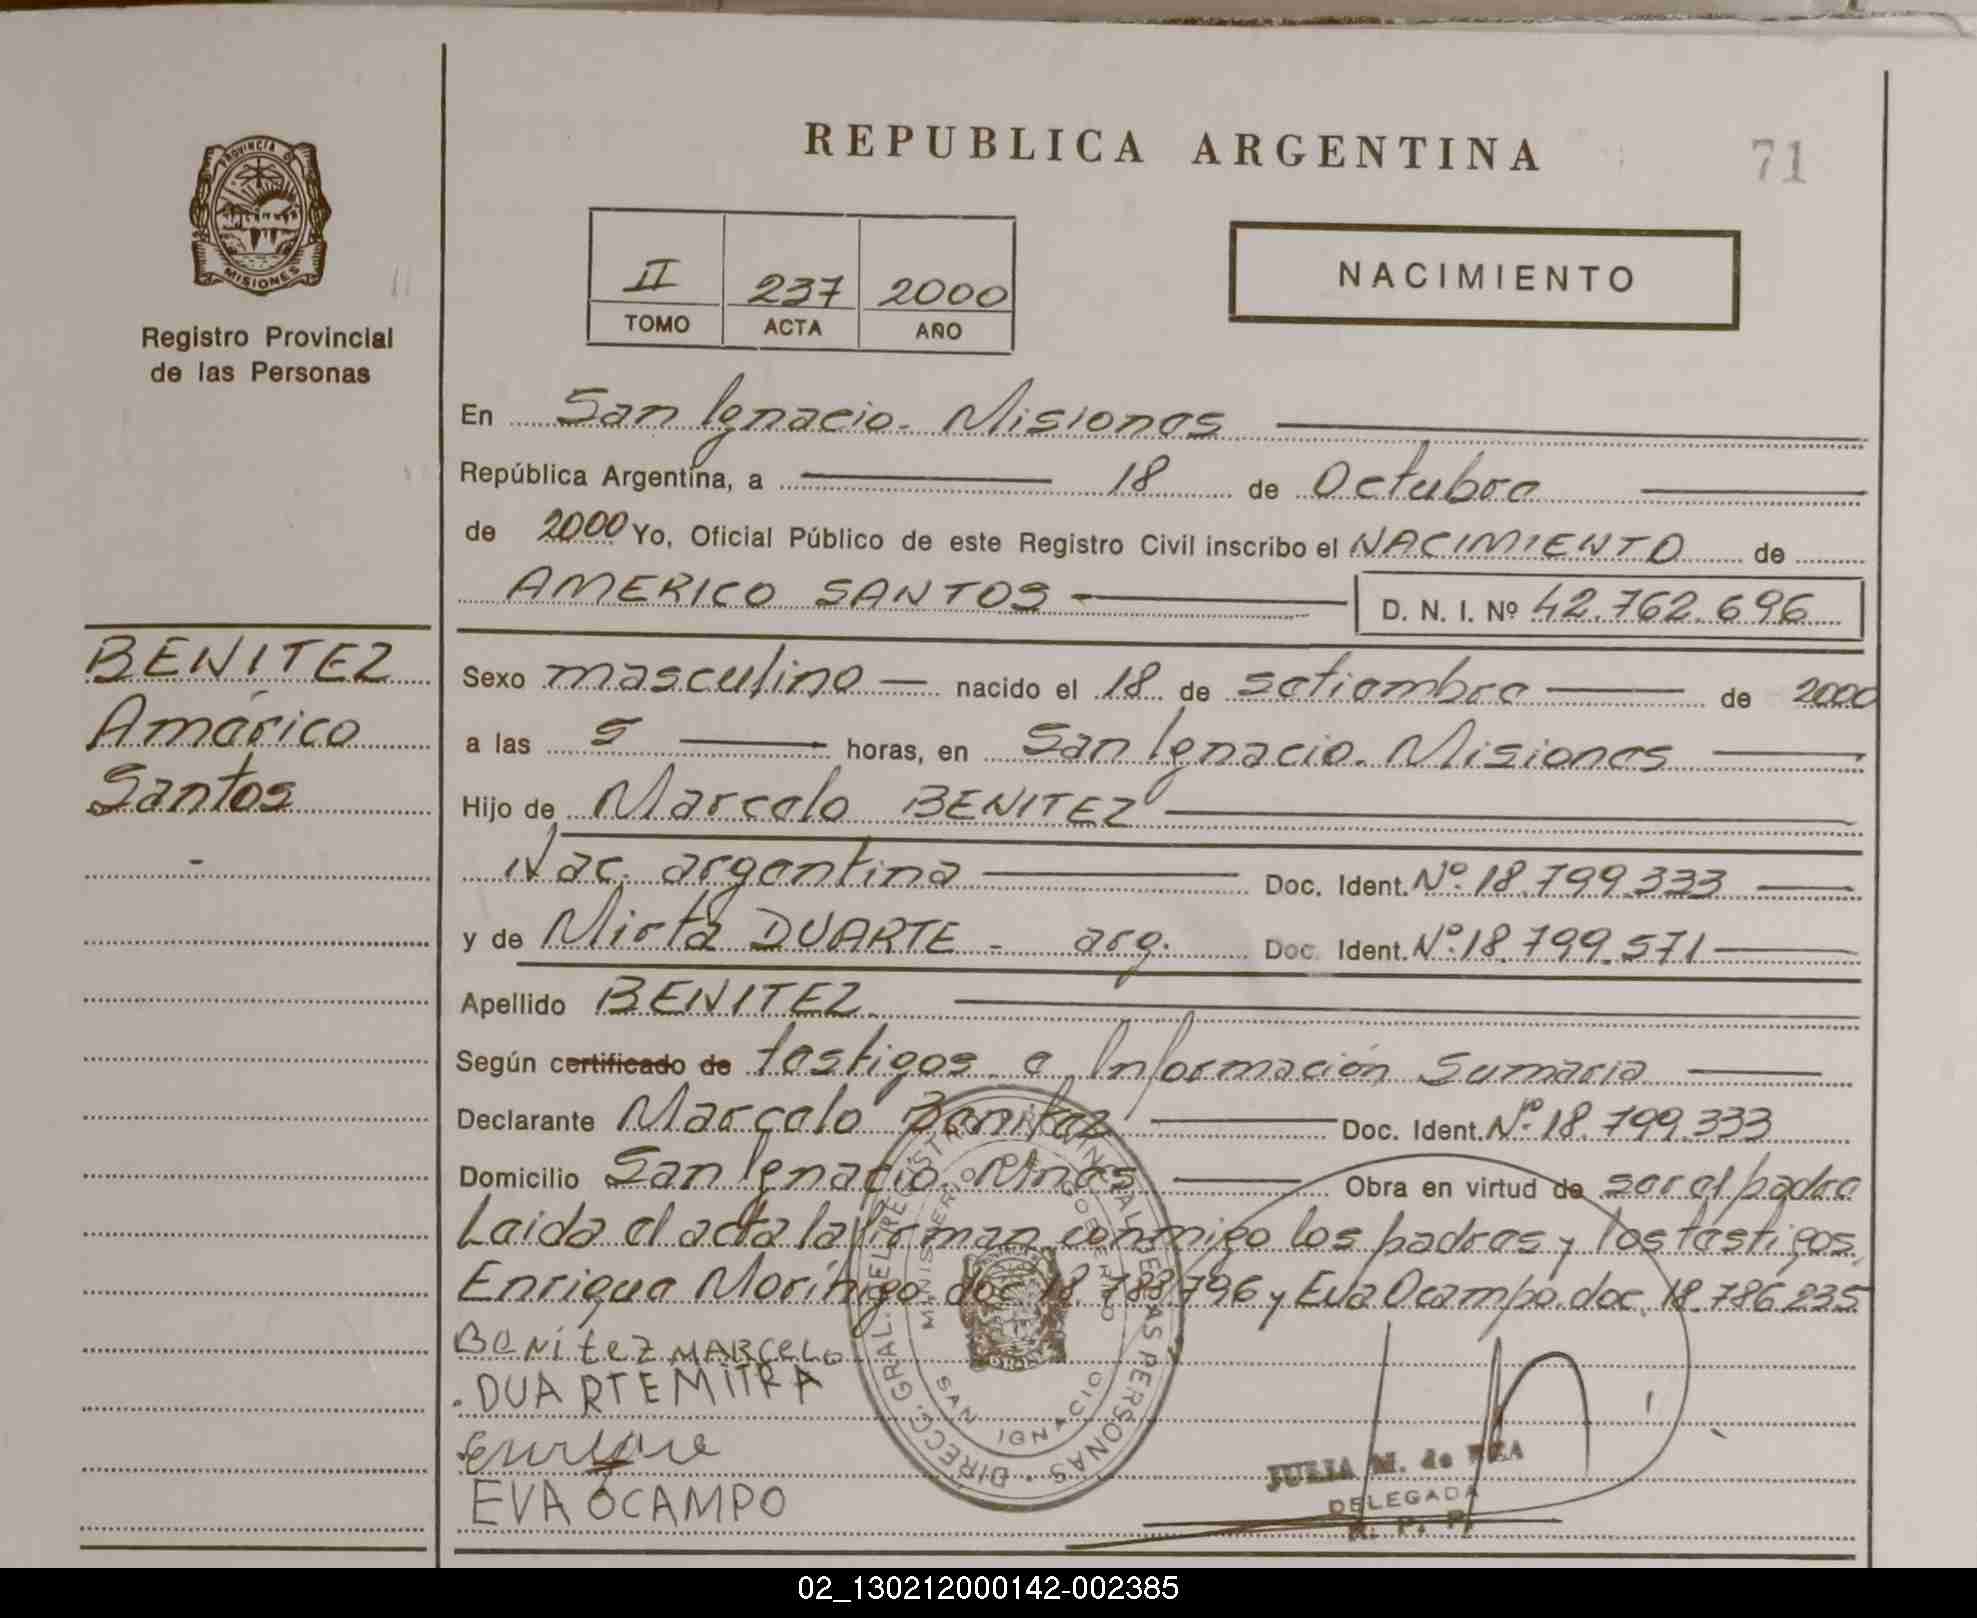 REPUBLICA ARGENTINA
71
PROVINCIA D
MISIONES
Registro Provincial
de las Personas
II 237 2000
TOMO ACTA AÑO
NACIMIENTO
En San Ignacio. Misiones
República Argentina, a 18 de Octubre
de 2000 Yo, Oficial Público de este Registro Civil inscribo el NACIMIENTO de
AMERICO SANTOS D. N. I. Nº 42.762.696
BENITEZ
Américo
Santos
Sexo masculino nacido el 18 de setiembre de 2000
a las 5 horas, en San Ignacio. Misiones
Hijo de Marcelo BENITEZ
Nac. argentina Doc. Ident. Nº 18.799.333
y de Mirta DUARTE - arg. Doc. Ident. Nº 18.799.571
Apellido BENITEZ
Según certificado de testigos e Información Sumaria
Declarante Marcelo Benitez Doc. Ident. Nº 18.799.333
Domicilio San Ignacio. Mnes Obra en virtud de ser el padre
Leida el acta la firman conmigo los padres y los testigos.
Enrique Moríñigo doc 18.788.796 y Eva Ocampo. doc. 18.786.235
BeNitez MARCELO
DUARTE MITRA
Enrique
EVA OCAMPO
DIRECC. GRAL. DEL REGISTRO PROVINCIAL DE LAS PERSONAS
MINISTERIO DE GOBIERNO
SAN IGNACIO
JULIA M. de REA
DELEGADA
R. P. P.
02_130212000142-002385